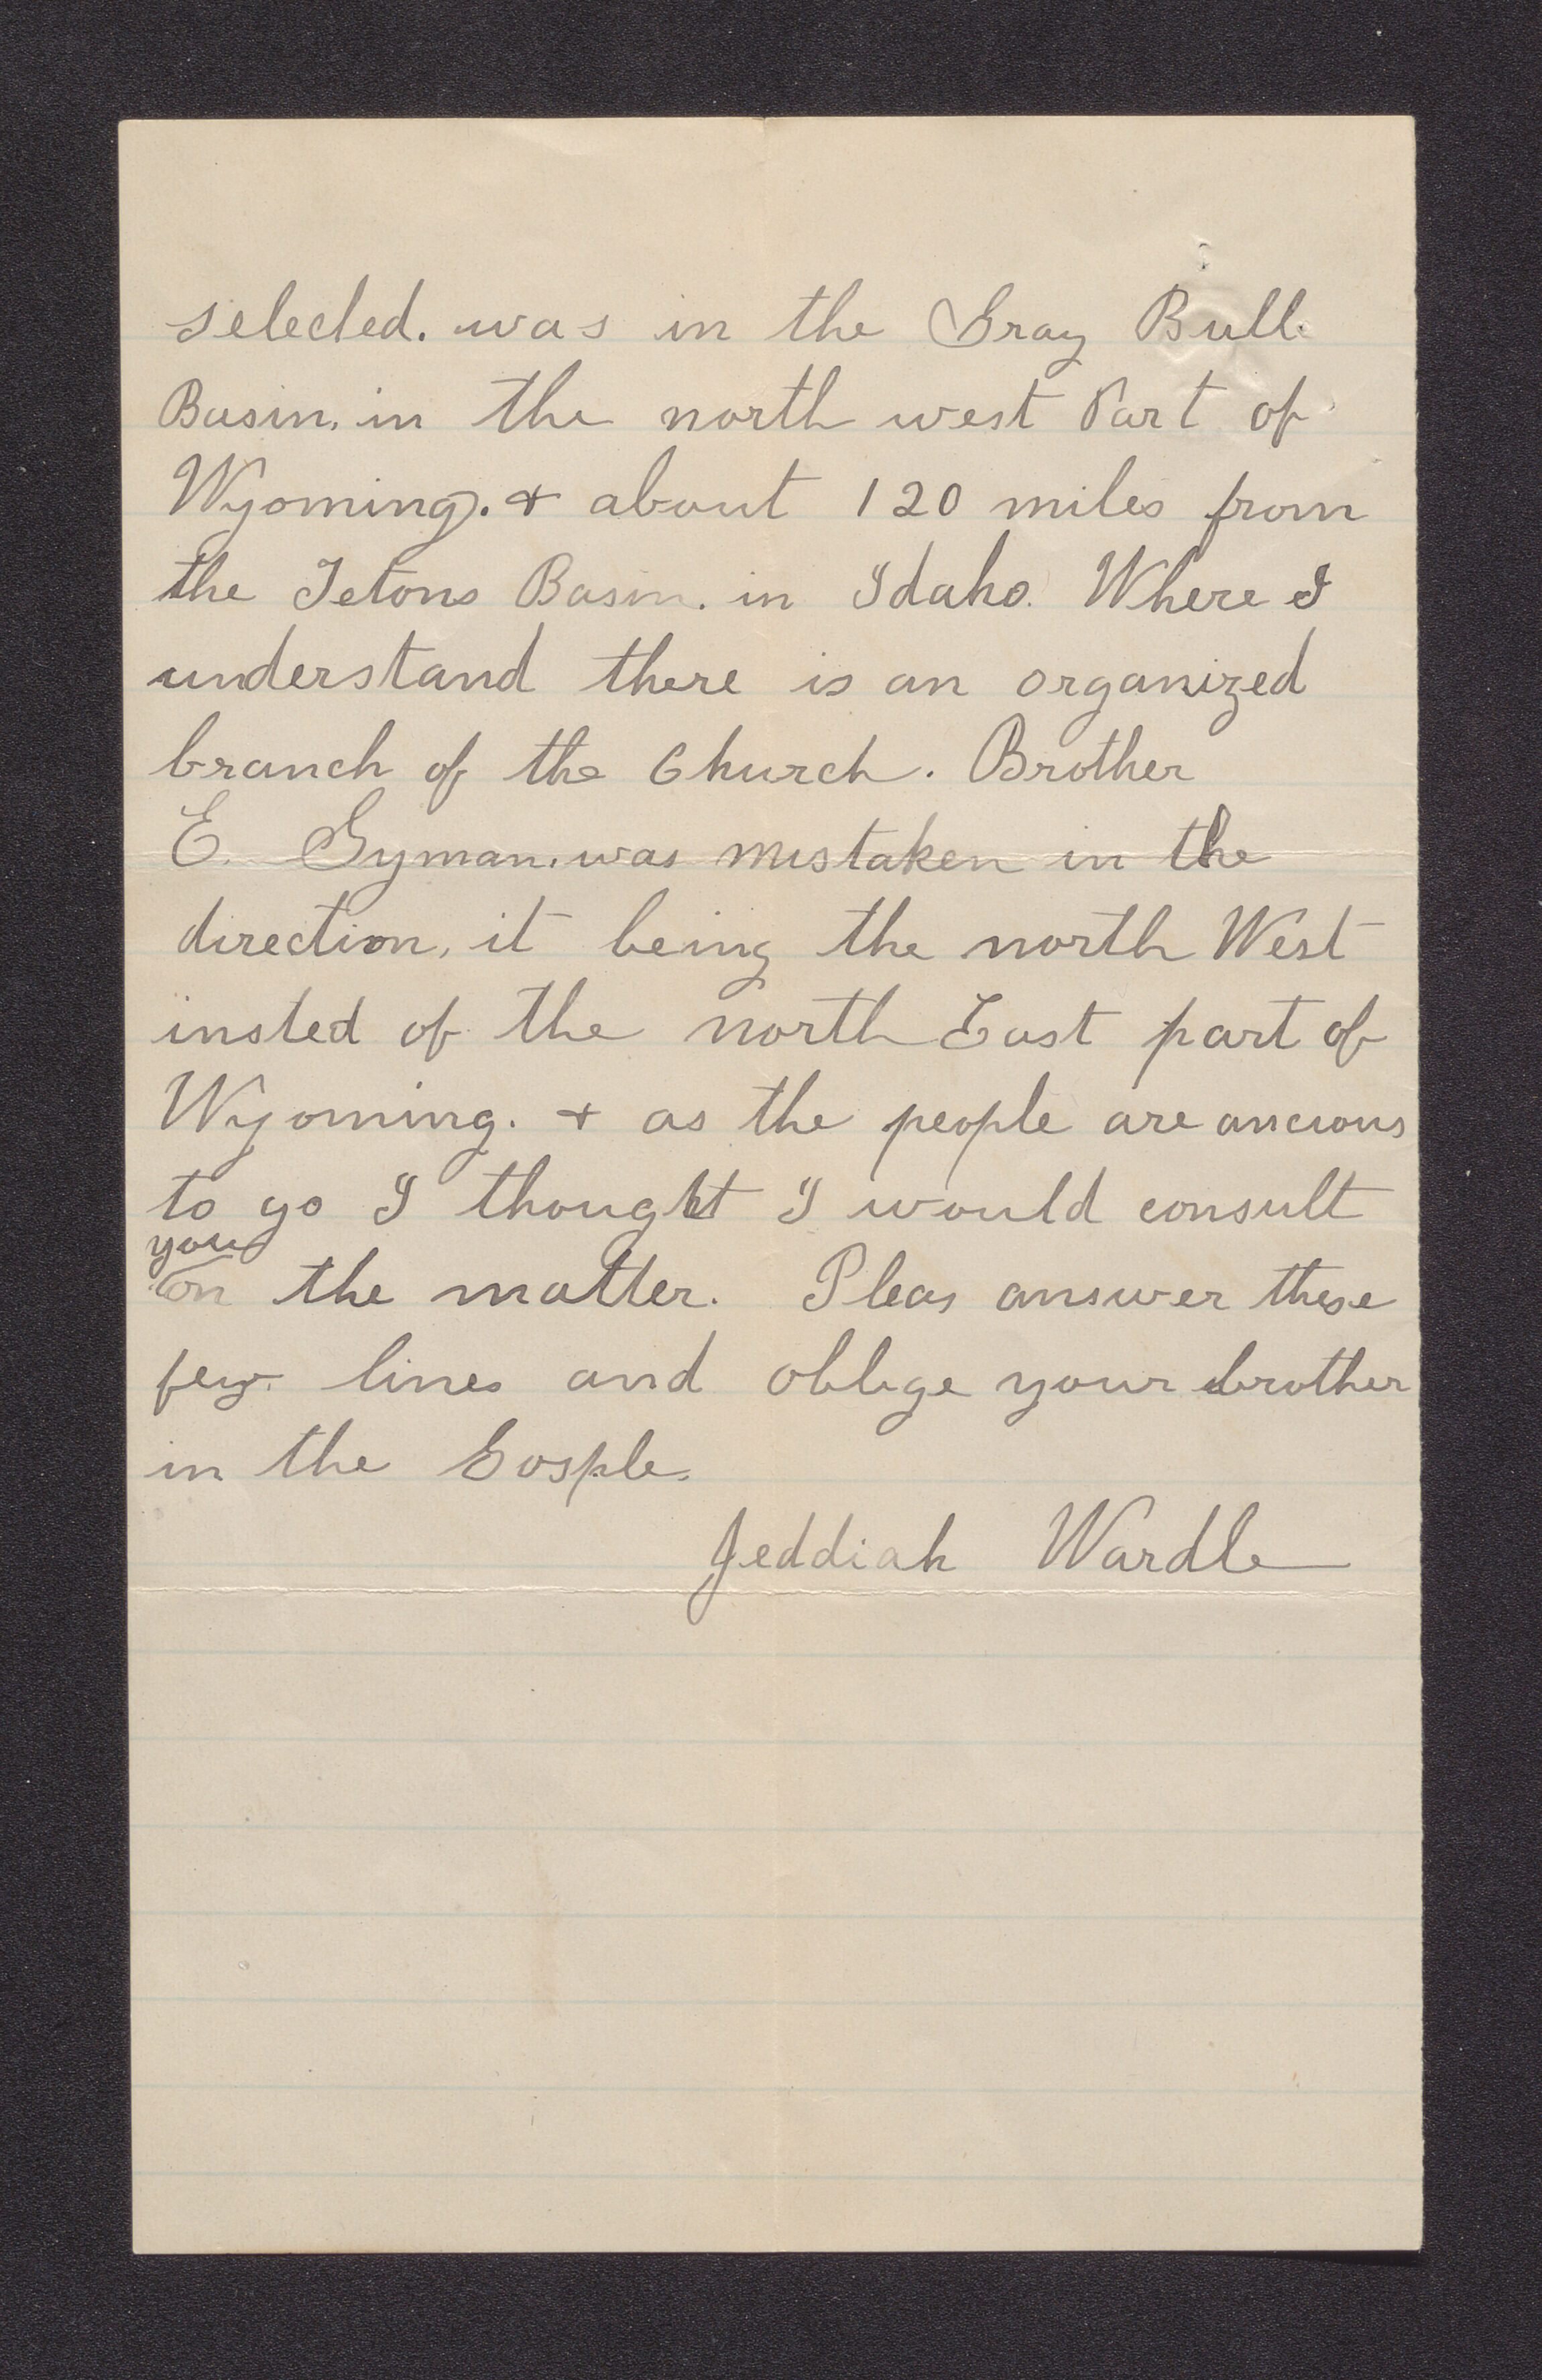 selected. was in the Gray Bull
Basin. in the north west Part of
Wyoming. & about 120 miles from
the Tetons Basin. in Idaho. Where I
understand there is an organized
branch of the Church. Brother
E. Gyman. was mistaken in the
direction, it being the north West
insted of the north East part of
Wyoming. & as the people are ancious
to go I thought I would consult
you
on the matter. Pleas answer these
few lines and oblige your brother
in the Gosple.
Jeddiah Wardle